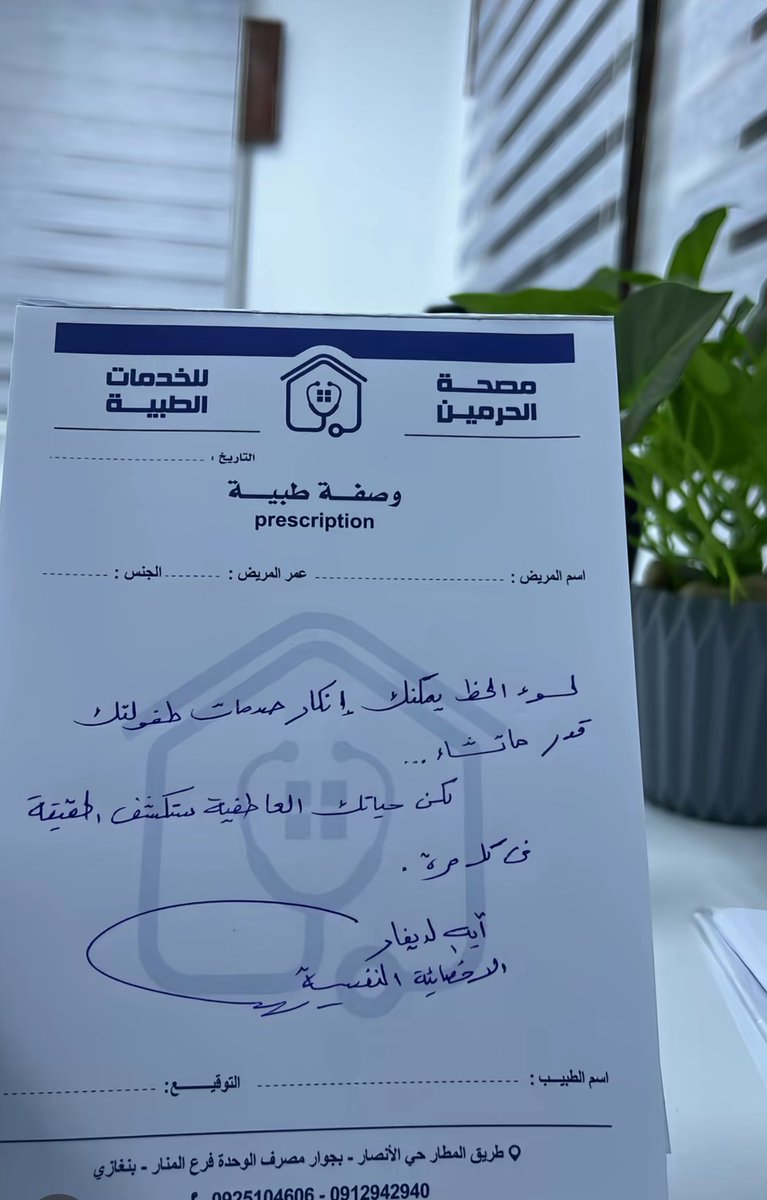 مصحة الحرمين
للخدمات الطبية
التاريخ :
وصفة طبية
prescription
اسم المريض : عمر المريض : الجنس :
لسوء الحظ يمكنك إنكار صدمات طفولتك
قدر ماتشاء ...
لكن حياتك العاطفية ستكشف الحقيقة
في كل مرة .
آية
الاخصائية النفسية
اسم الطبيب : التوقيع:
طريق المطار حي الأنصار - بجوار مصرف الوحدة فرع المنار - بنغازي
0925104606 - 0912942940